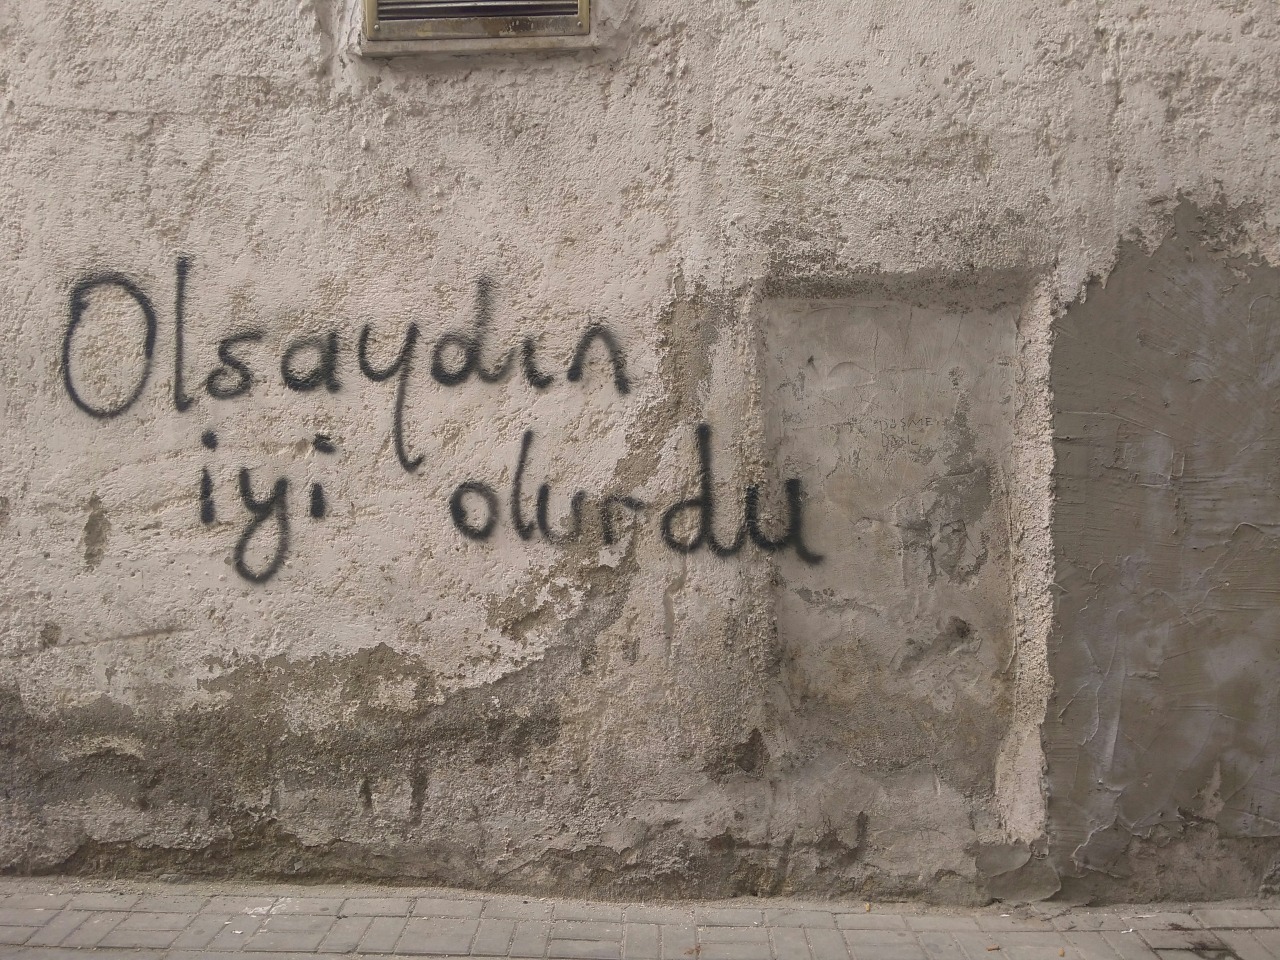 Olsaydın
iyi olurdu